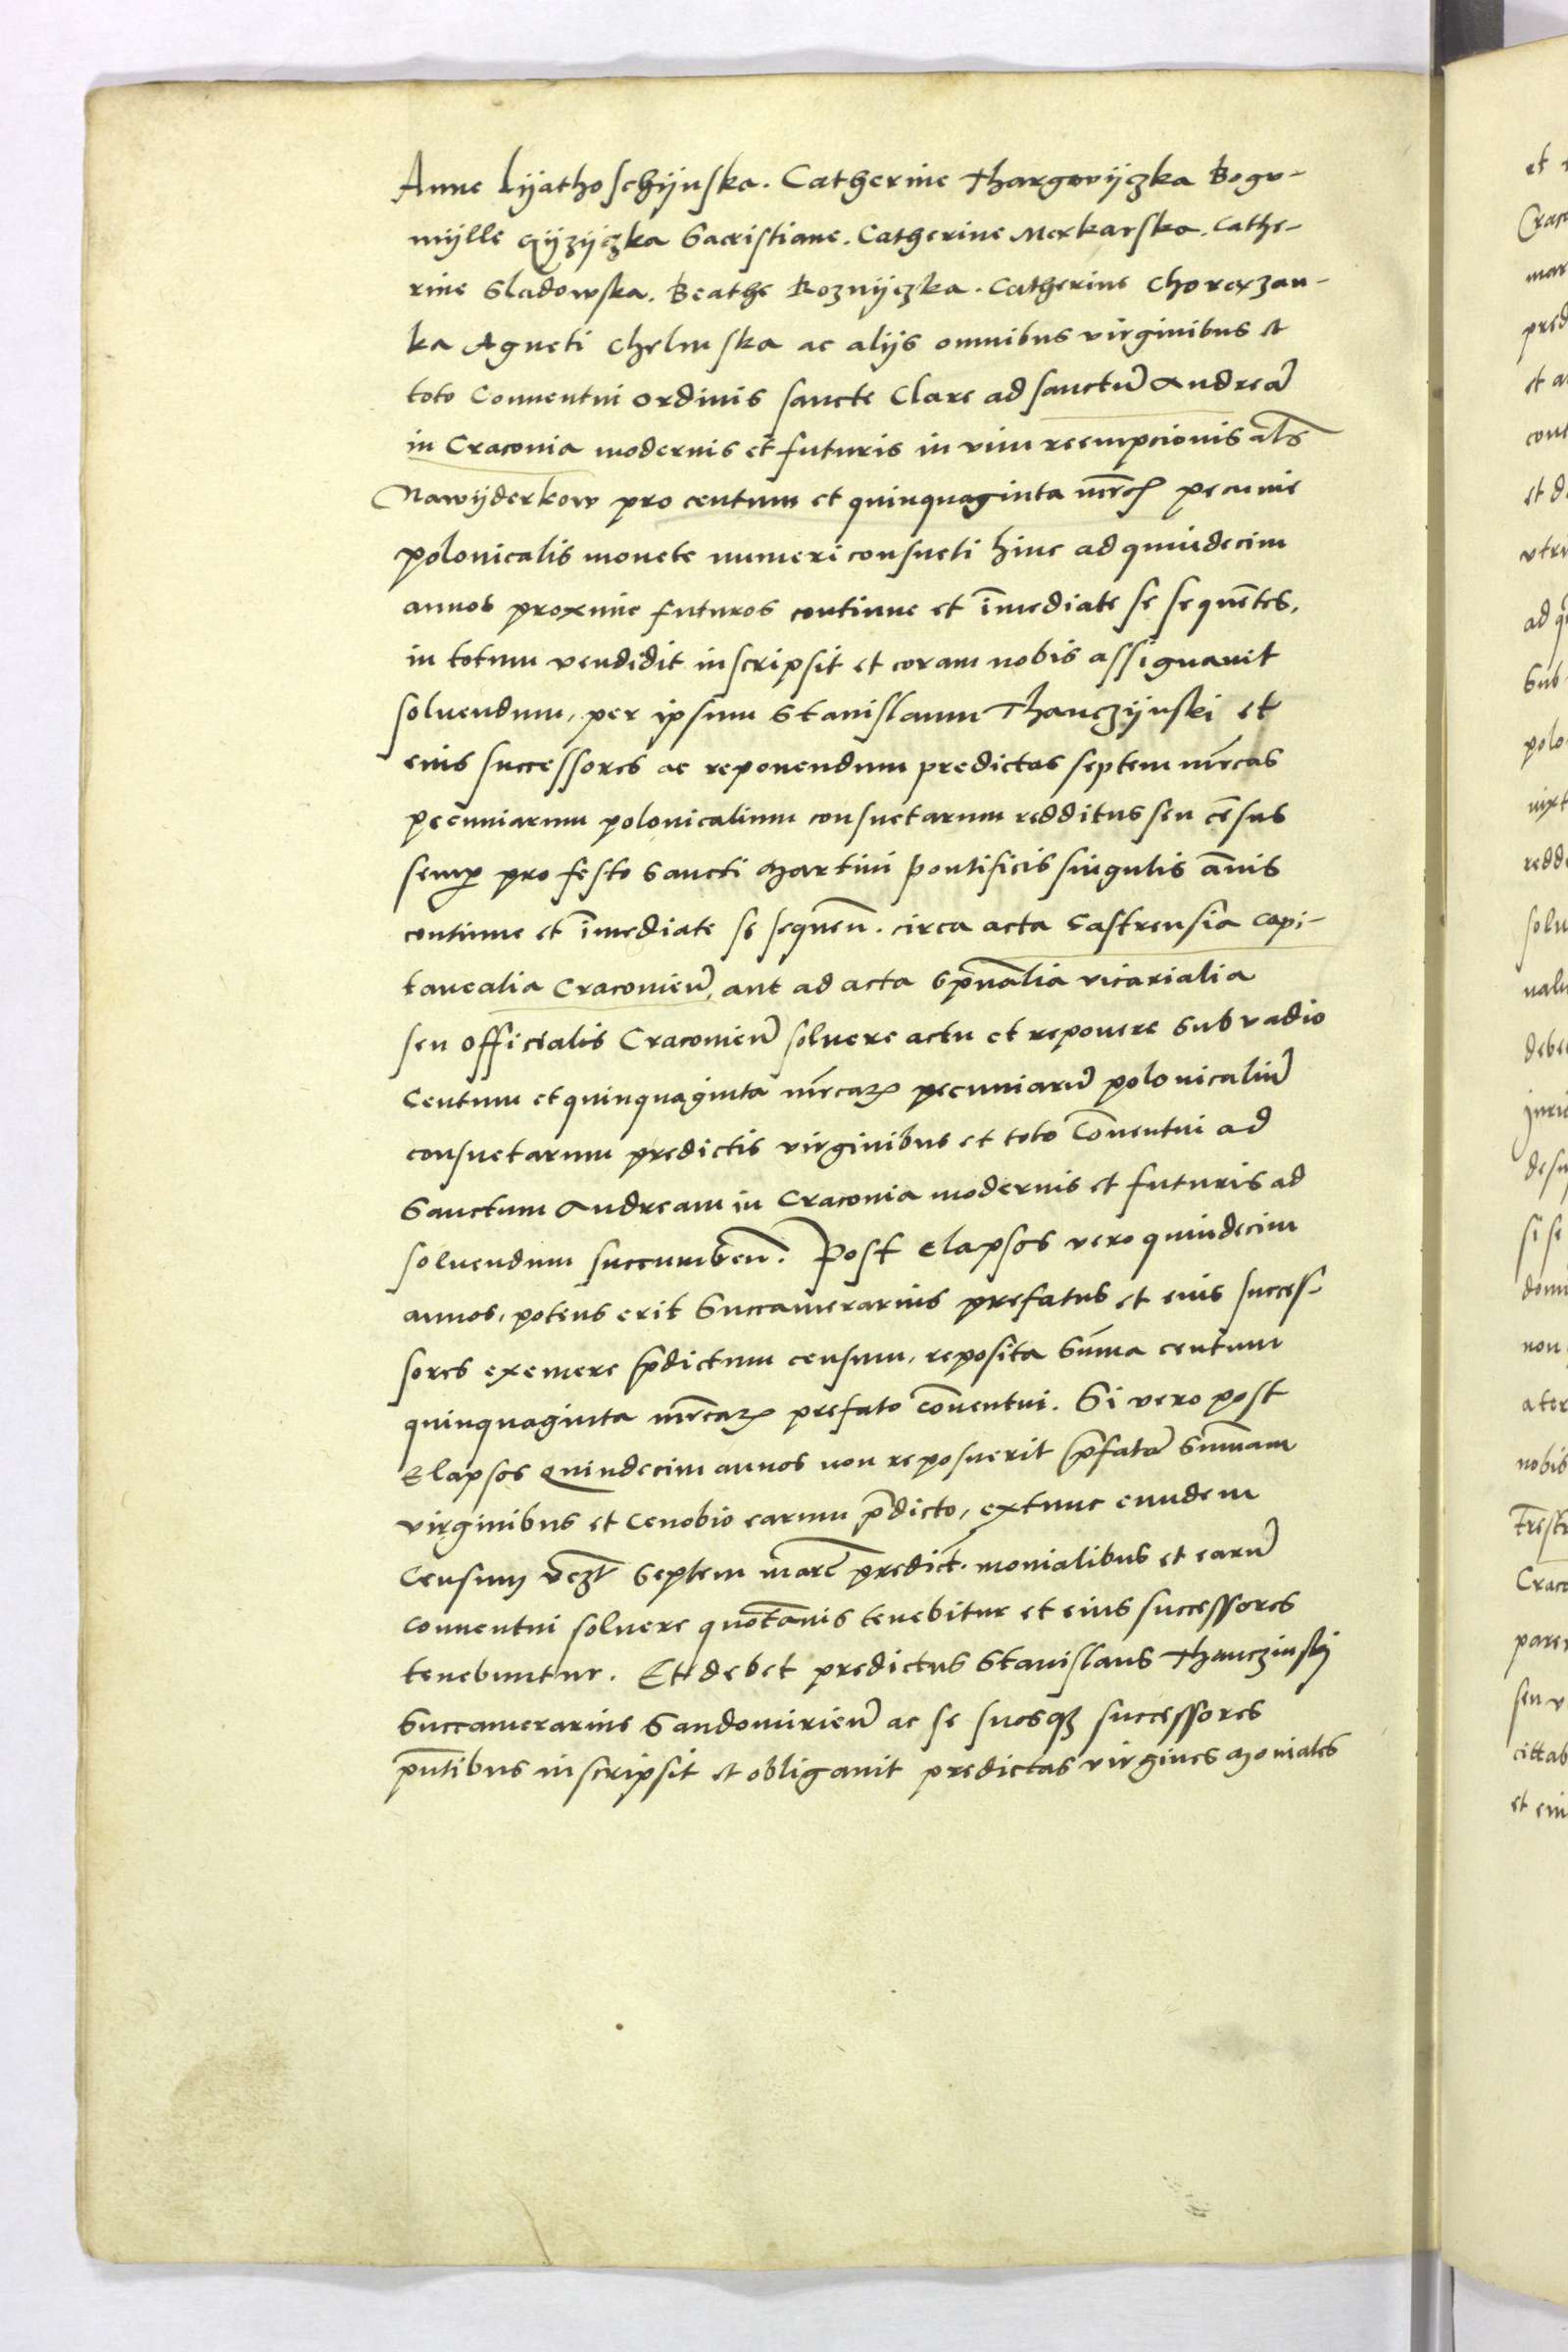 Anne Lyathoschÿnska. Catherine Thargovÿczka Bogu-
mÿlle Gÿzÿczka Sacristiane. Catherine Merkarska. Cathe-
rine Sladowska. Beathe Roznÿczka. Catherine Chorczan-
ka Agneti Chelmska ac alijs omnibus virginibus et
toto Conuentui ordinis sancte Clare ad sanctũ Andreã
in Craconia modernis et futuris in vim reempcionis als̃
Nawÿderkow pro centum et quinquaginta mrc̃ pecunie
polonicalis monete numeri consueti hinc ad quindecim
annos proxime futuros continue et im̃ediate se sequẽtes,
in totum vendidit inscripsit et coram nobis assignauit
soluendum, per ipsum Stanislaum Thanczÿnski et
eius successores ac reponendum predictas septem mrc̃as
pecuniarum polonicalium consuetarum redditus seu cẽsus
semp̱ pro festo Sancti Martini pontificis singulis ãnis
continue et im̃ediate se sequeñ. circa acta Castrensia Capi-
tanealia Cracouieñ, aut ad acta sp̃ualia vicarialia
seu officialis Cracouieñ soluere actu et reponere sub vadio
Centum et quinquaginta mrc̃aꝝ pecuniarũ polonicaliũ
consuetarum predictis virginibus et toto Cõuentui ad
Sanctum Andream in Craconia modernis et futuris ad
soluendum succumbeñ. Post elapsos vero quindecim
annos, potens erit Succamerarius prefatus et eius succes-
sores exemere p̃dictum censum, reposita Sum̃a centum
quinquaginta mrc̃aꝝ prefato cõuentui. Si vero post
Elapsos Quindecim annos non reposuerit p̃fatã Summam
virginibus et Cenobio earum p̃dicto, extunc eundem
Censum vcꝫt̃ Septem marc̃ predict̃. monialibus et earũ
conuentui soluere quotãnis tenebitur et eius successores
tenebuntur. Et debet predictus Stanislaus Thanczinskj
Succamerarius Sandomirieñ ac se suosqꝫ successores
pñtibus inscripsit et obligauit predictas virgines Moniales